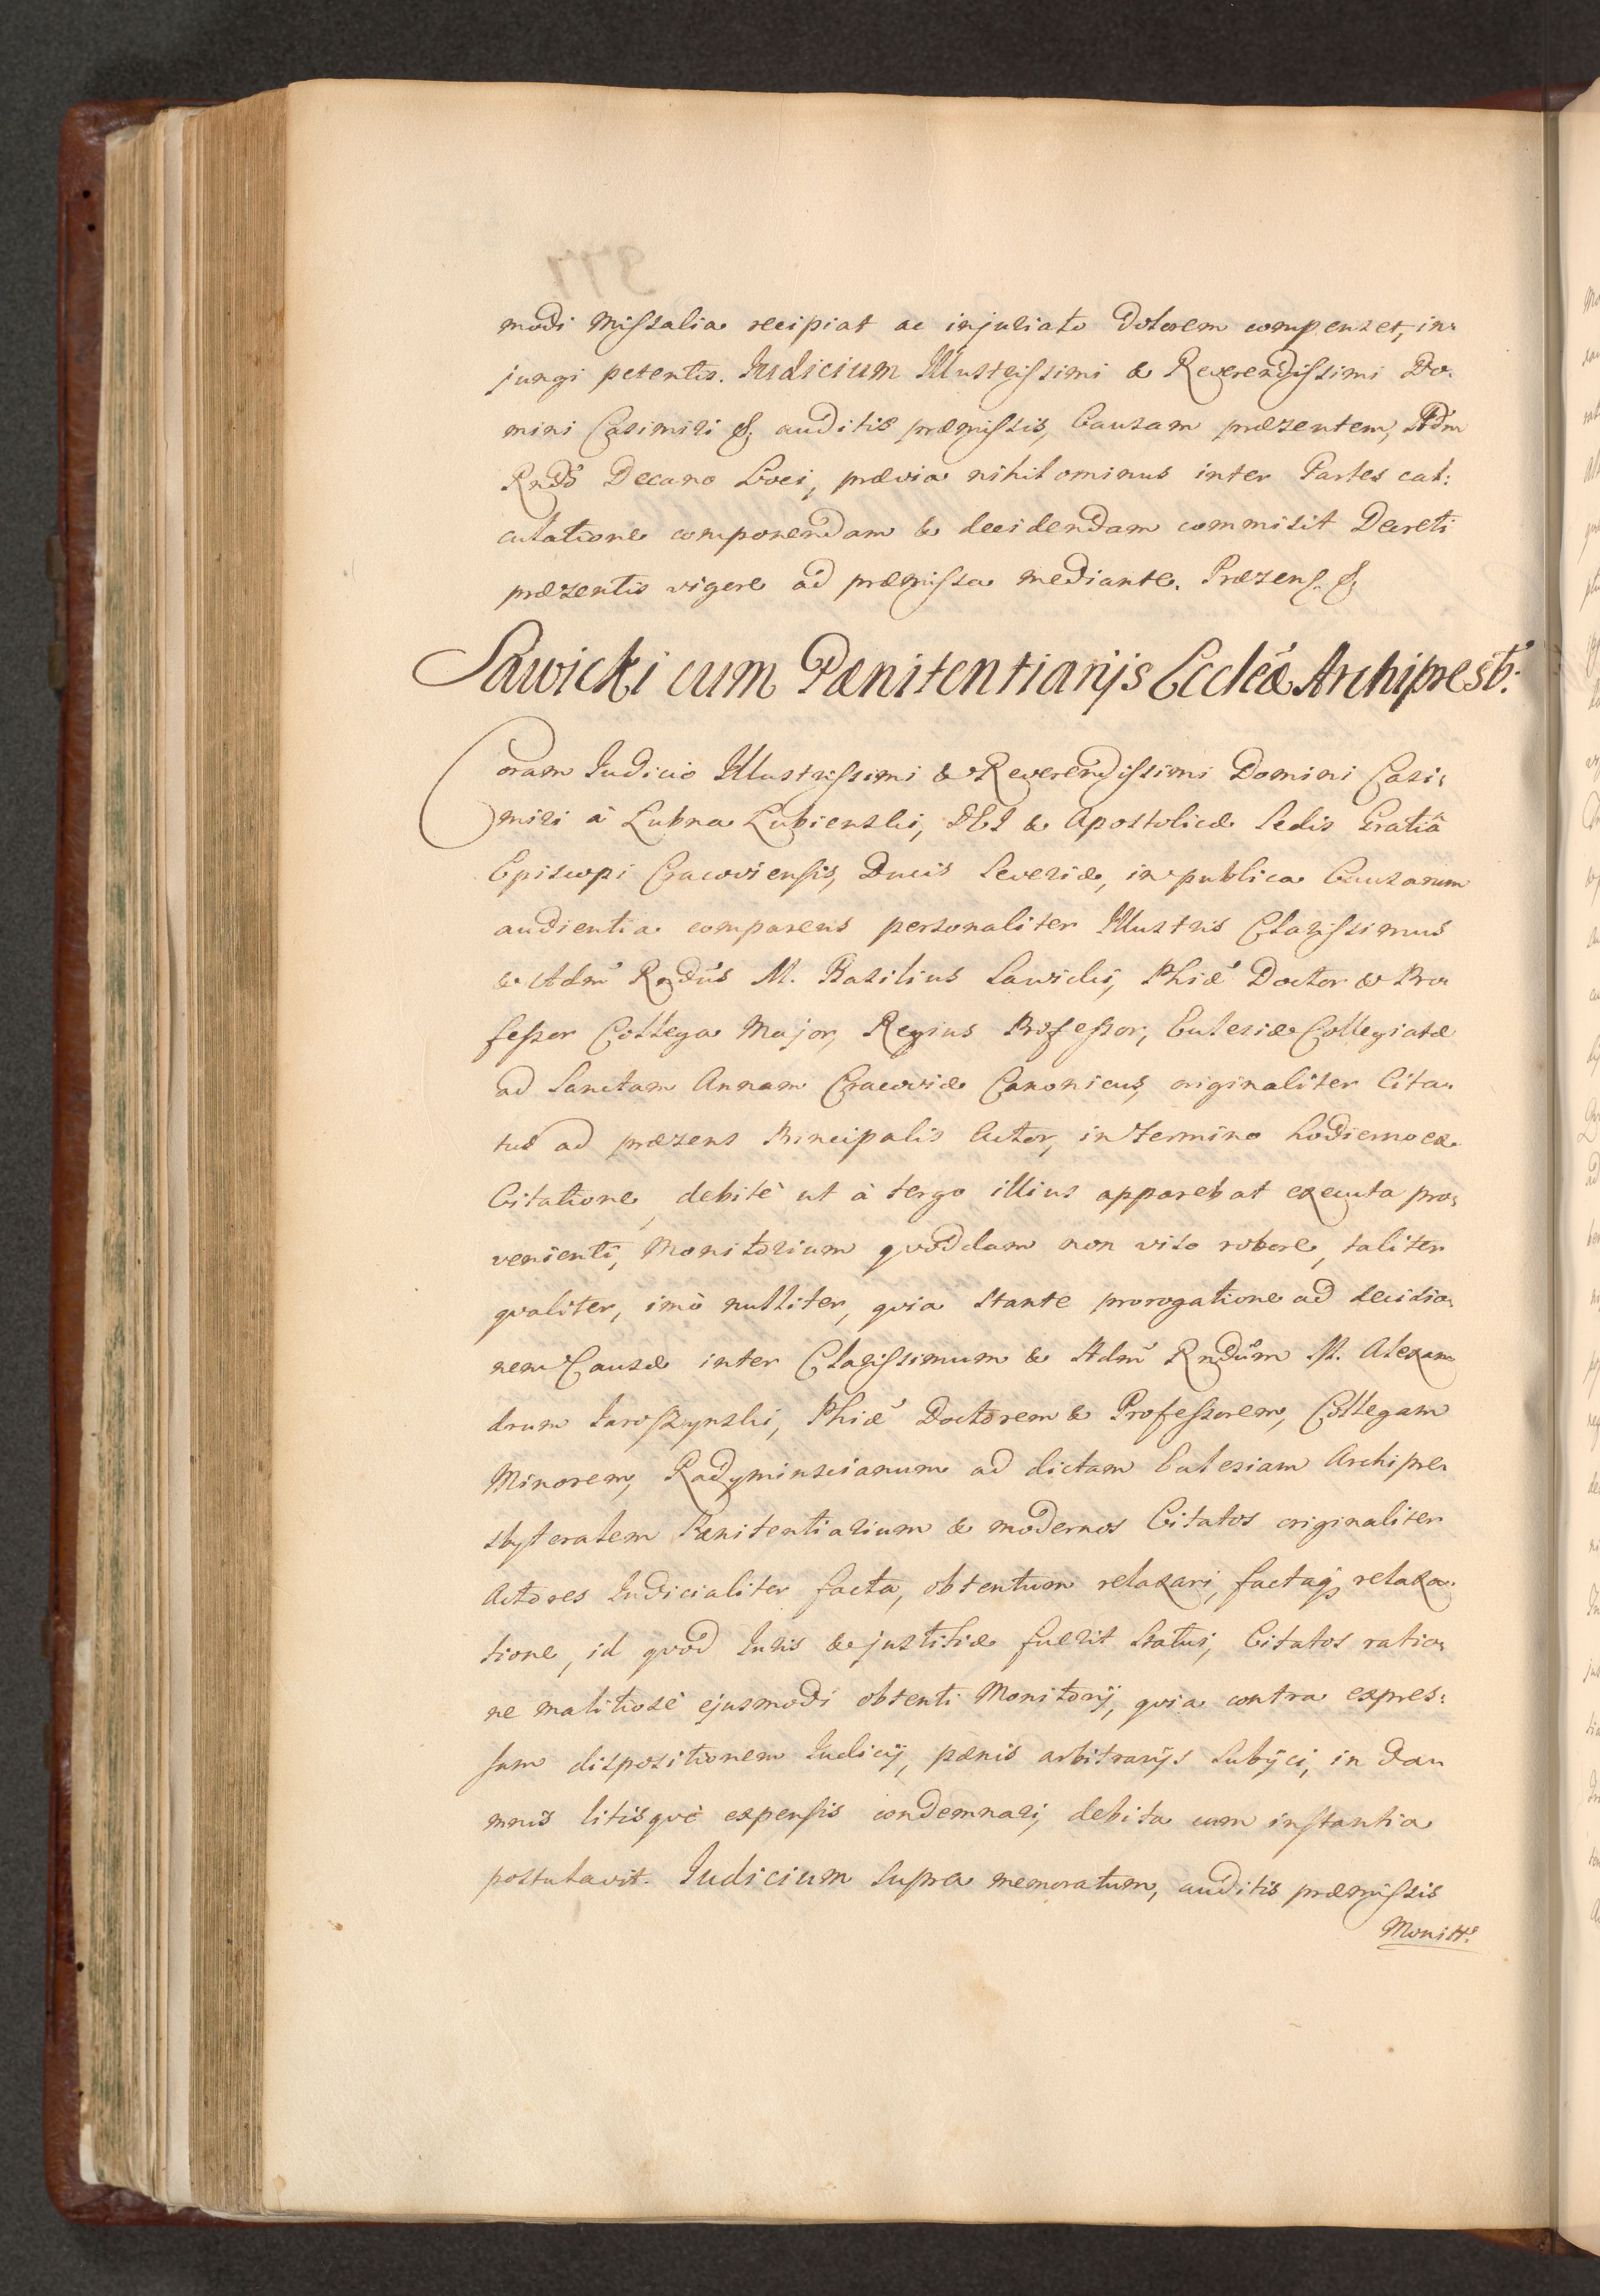 modi Missalia recipiat ac injuriato dolorem compenset, in-
jungi petentis. Judicium Illustrissimi & Reverendissimi Do-
mini Casimiri &c. auditis præmissis, Causam præsentem, Adm
Rndo Decano Loci, prævia nihilominus inter Partes cal:
culatione componendam & decidendam commisit Decreti
præsentis vigore ad præmissa mediante. Præsens. &c
Sawicki cum Pænitentiarijs Eccleæ Archipresb:
Coram Judicio Illustrissimi & Reverendissimi Domini Casi-
miri à Lubna Lubienski, DEI & Apostolicæ Sedis Gratiâ
Episcopi Cracoviensis, Ducis Severiæ, in publica Causarum
audientia comparens personaliter Illustris Clarissimus
& Adm Rndus M. Basilius Sawicki, Phiæ Doctor & Pro-
fessor Collega Major, Regius Professor, Ecclesiæ Collegiatæ
ad Sanctam Annam Cracoviæ Canonicus, originaliter Cita-
tus ad præsens Principalis Actor, in termino hodierno ex
Citatione, debitè ut à tergo illius apparebat executa pro-
venienti, Monitorium quoddam non viso robore, taliter
qualiter, imò nulliter, quia stante prorogatione ad decisio-
nem Causæ inter Clarissimum & Adm Rndum M. Alexan-
drum Jaroszynski, Phiæ Doctorem & Professorem, Collegam
Minorem, Radyminscianum ad dictam Ecclesiam Archipre-
sbyteralem Pænitentiarium & modernos Citatos originaliter
Actores Judicialiter facta, obtentum relaxari, factaq relaxa-
tione, id quod Juris & justitiæ fuerit statui, Citatos ratio-
ne malitiosè ejusmodi obtenti Monitorij, quia contra expres-
sam dispositionem Judicij, pænis arbitrarijs subijci, in dam
mnis litisquè expensis condemnari, debita cum instantia
postulavit. Judicium supra memoratum, auditis præmissis
Monitt: